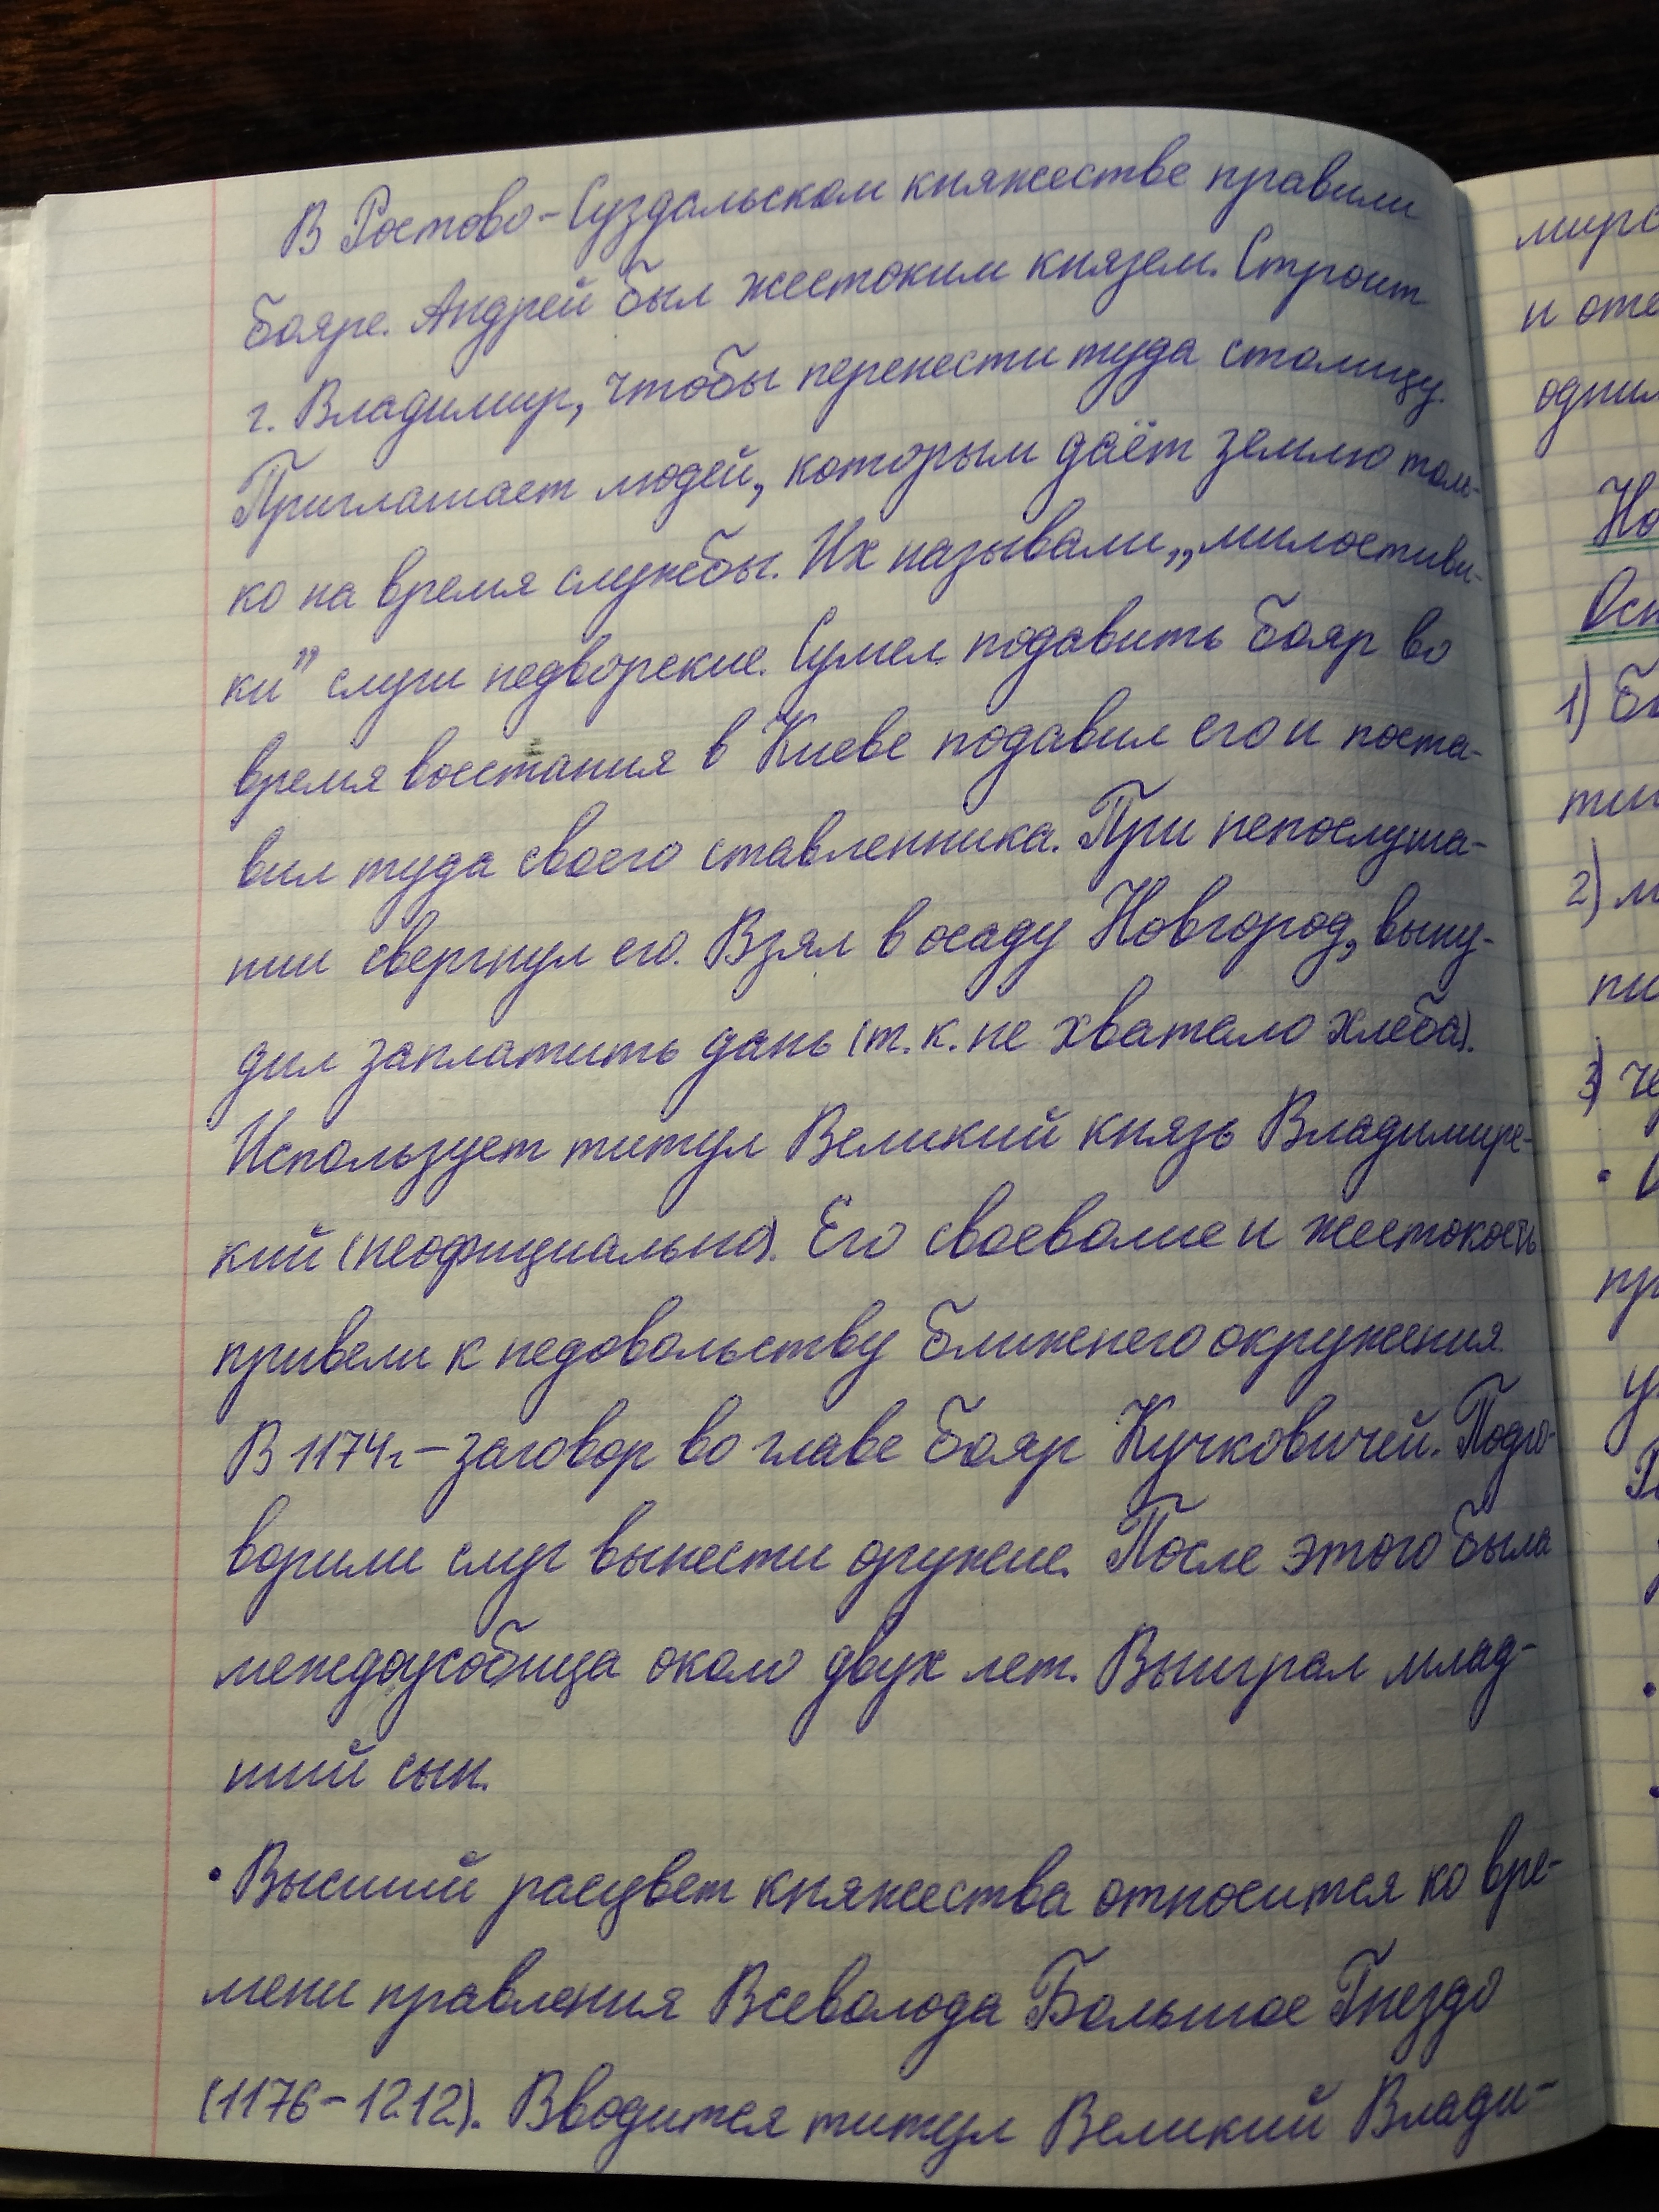 В Ростово-Суздальском княжестве правили
бояре. Андрей был жестоким князем. Строит
г. Владимир, чтобы перенести туда столицу.
Приглашает людей, которым даёт землю толь-
ко на время службы. Их называли „милостиви-
ки” слуги недворские. Сумел подавить бояр во
время восстания в Киеве подавил его и поста-
вил туда своего ставленника. При непослуша-
нии свергнул его. Взял в осаду Новгород, выну-
дил заплатить дань (т.к. не хватало хлеба).
Использует титул Великий князь Владимирс-
кий (неофициально). Его своеволие и жестокость
привели к недовольству ближнего окружения.
В 1174г.-заговор во главе бояр Кучковичей. Подго-
ворили слуг вынести оружие. После этого была
междоусобица около двух лет. Выиграл млад-
ший сын.
• Высший расцвет княжества относится ко вре-
мени правления Всеволода Большое Гнездо
(1176-1212). Вводится титул Великий Влади-
1)
2)
3)